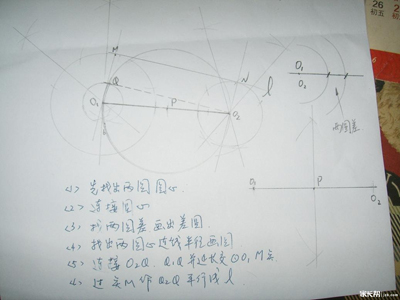 M
Q
N
l
O₁
P
O₂
O₁
O₂
两圆差
O₁
P
O₂
(1) 先找出两圆圆心
(2) 连接圆心
(3) 找两圆差 画出差圆
(4) 找出两圆心连线半径画圆
(5) 连接O₂Q. O₁Q并延长交⊙O₁ M点
(6) 过点M作O₂Q平行线l
26
初五